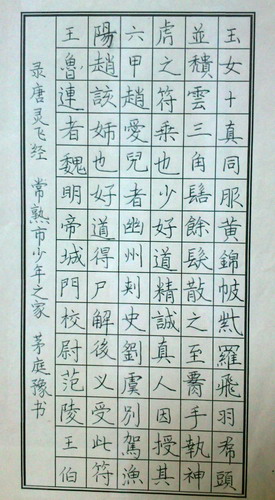 玉女十真同服黃錦帔紫羅飛羽帬頭
並穨雲三角髻餘髮散之至𦝫手執神
虎之符乘也少好道精誠真人因授其
六甲趙愛兒者幽州刾史劉虞別駕漁
陽趙該姊也好道得尸解後又受此符
王魯連者魏明帝城門校尉范陵王伯
录唐灵飞经 常熟市少年之家 茅庭豫书